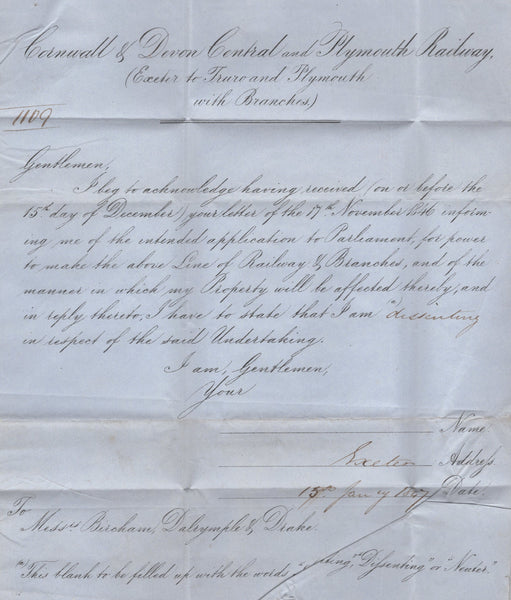 Cornwall & Devon Central and Plymouth Railway,
(Exeter to Truro and Plymouth
with Branches)
1109
Gentlemen,
I beg to acknowledge having received (on or before the
15th day of December) your letter of the 17th November 1846 inform-
ing me of the intended application to Parliament, for power
to make the above Line of Railway & Branches, and of the
manner in which my Property will be affected thereby, and
in reply thereto, I have to state that I am (a) dissenting
in respect of the said Undertaking.
I am, Gentlemen,
Your
Name
Exeter Address
15th Jany 1847 Date
To
Messrs Bircham, Dalrymple & Drake.
(a) This blank to be filled up with the words "Dissenting" or "Neuter."